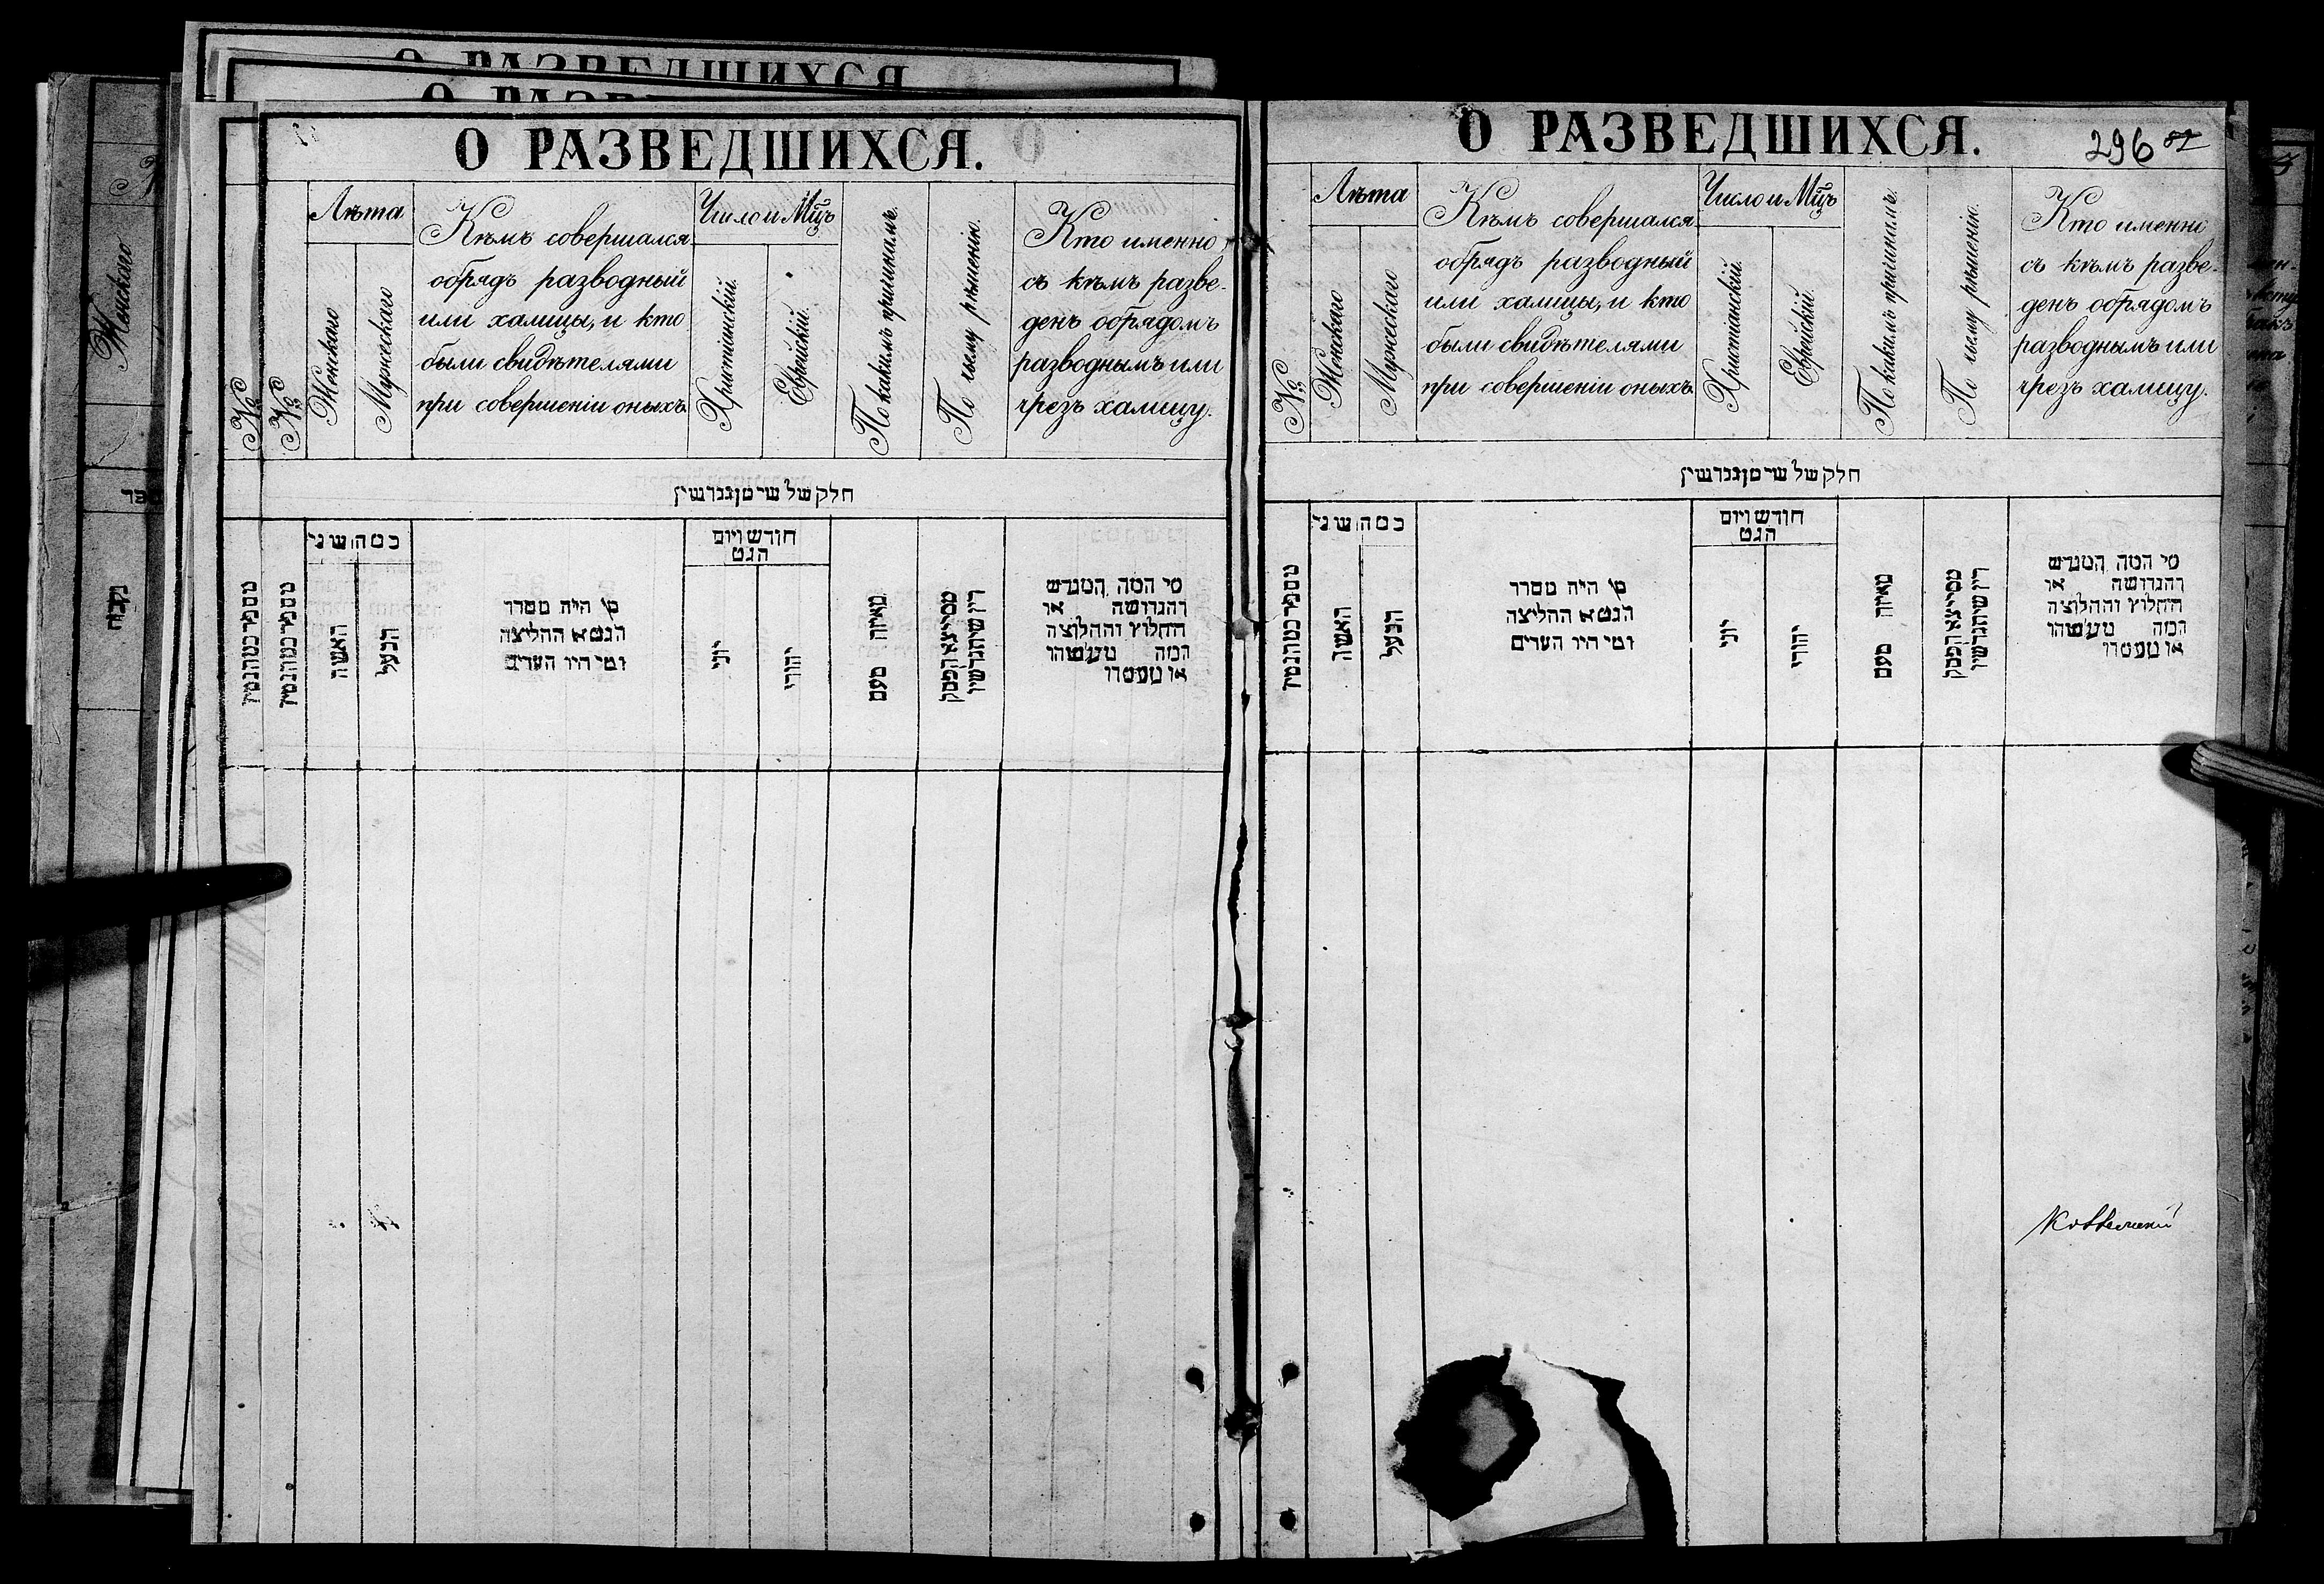 О РАЗВЕДШИХСЯ.
№
№
Лѣта
Женскаго
Мужескаго
Кѣмъ совершался
обрядъ разводный
или халицы, и кто
были свидѣтелями
при совершеніи оныхъ.
Число и Мѣцъ
Христіанскій.
Еврейскій.
По какимъ причинамъ.
По чьему рѣшенію.
Кто именно
съ кѣмъ разве-
денъ обрядомъ
разводнымъ или
чрезъ халицу.
חלק של
כמה שני
האשה
הבעל
מי היה מסדר
הגט או החליצה
ומי היו העדים
חודש ויום
הגט
יוני
יהודי
מאיזה טעם
מי המה המגרש
והגרושה או
החלוץ והחלוצה
המה
או
О РАЗВЕДШИХСЯ.
296
№
Лѣта
Женскаго
Мужескаго
Кѣмъ совершался
обрядъ разводный
или халицы, и кто
были свидѣтелями
при совершеніи оныхъ.
Число и Мѣцъ
Христіанскій.
Еврейскій.
По какимъ причинамъ.
По чьему рѣшенію.
Кто именно
съ кѣмъ разве-
денъ обрядомъ
разводнымъ или
чрезъ халицу.
חלק של
כמה שני
האשה
הבעל
מי היה מסדר
הגט או החליצה
ומי היו העדים
חודש ויום
הגט
יוני
יהודי
מאיזה טעם
מי המה המגרש
והגרושה או
החלוץ והחלוצה
המה
או
Женскаго
О РАЗВЕДШИХСЯ